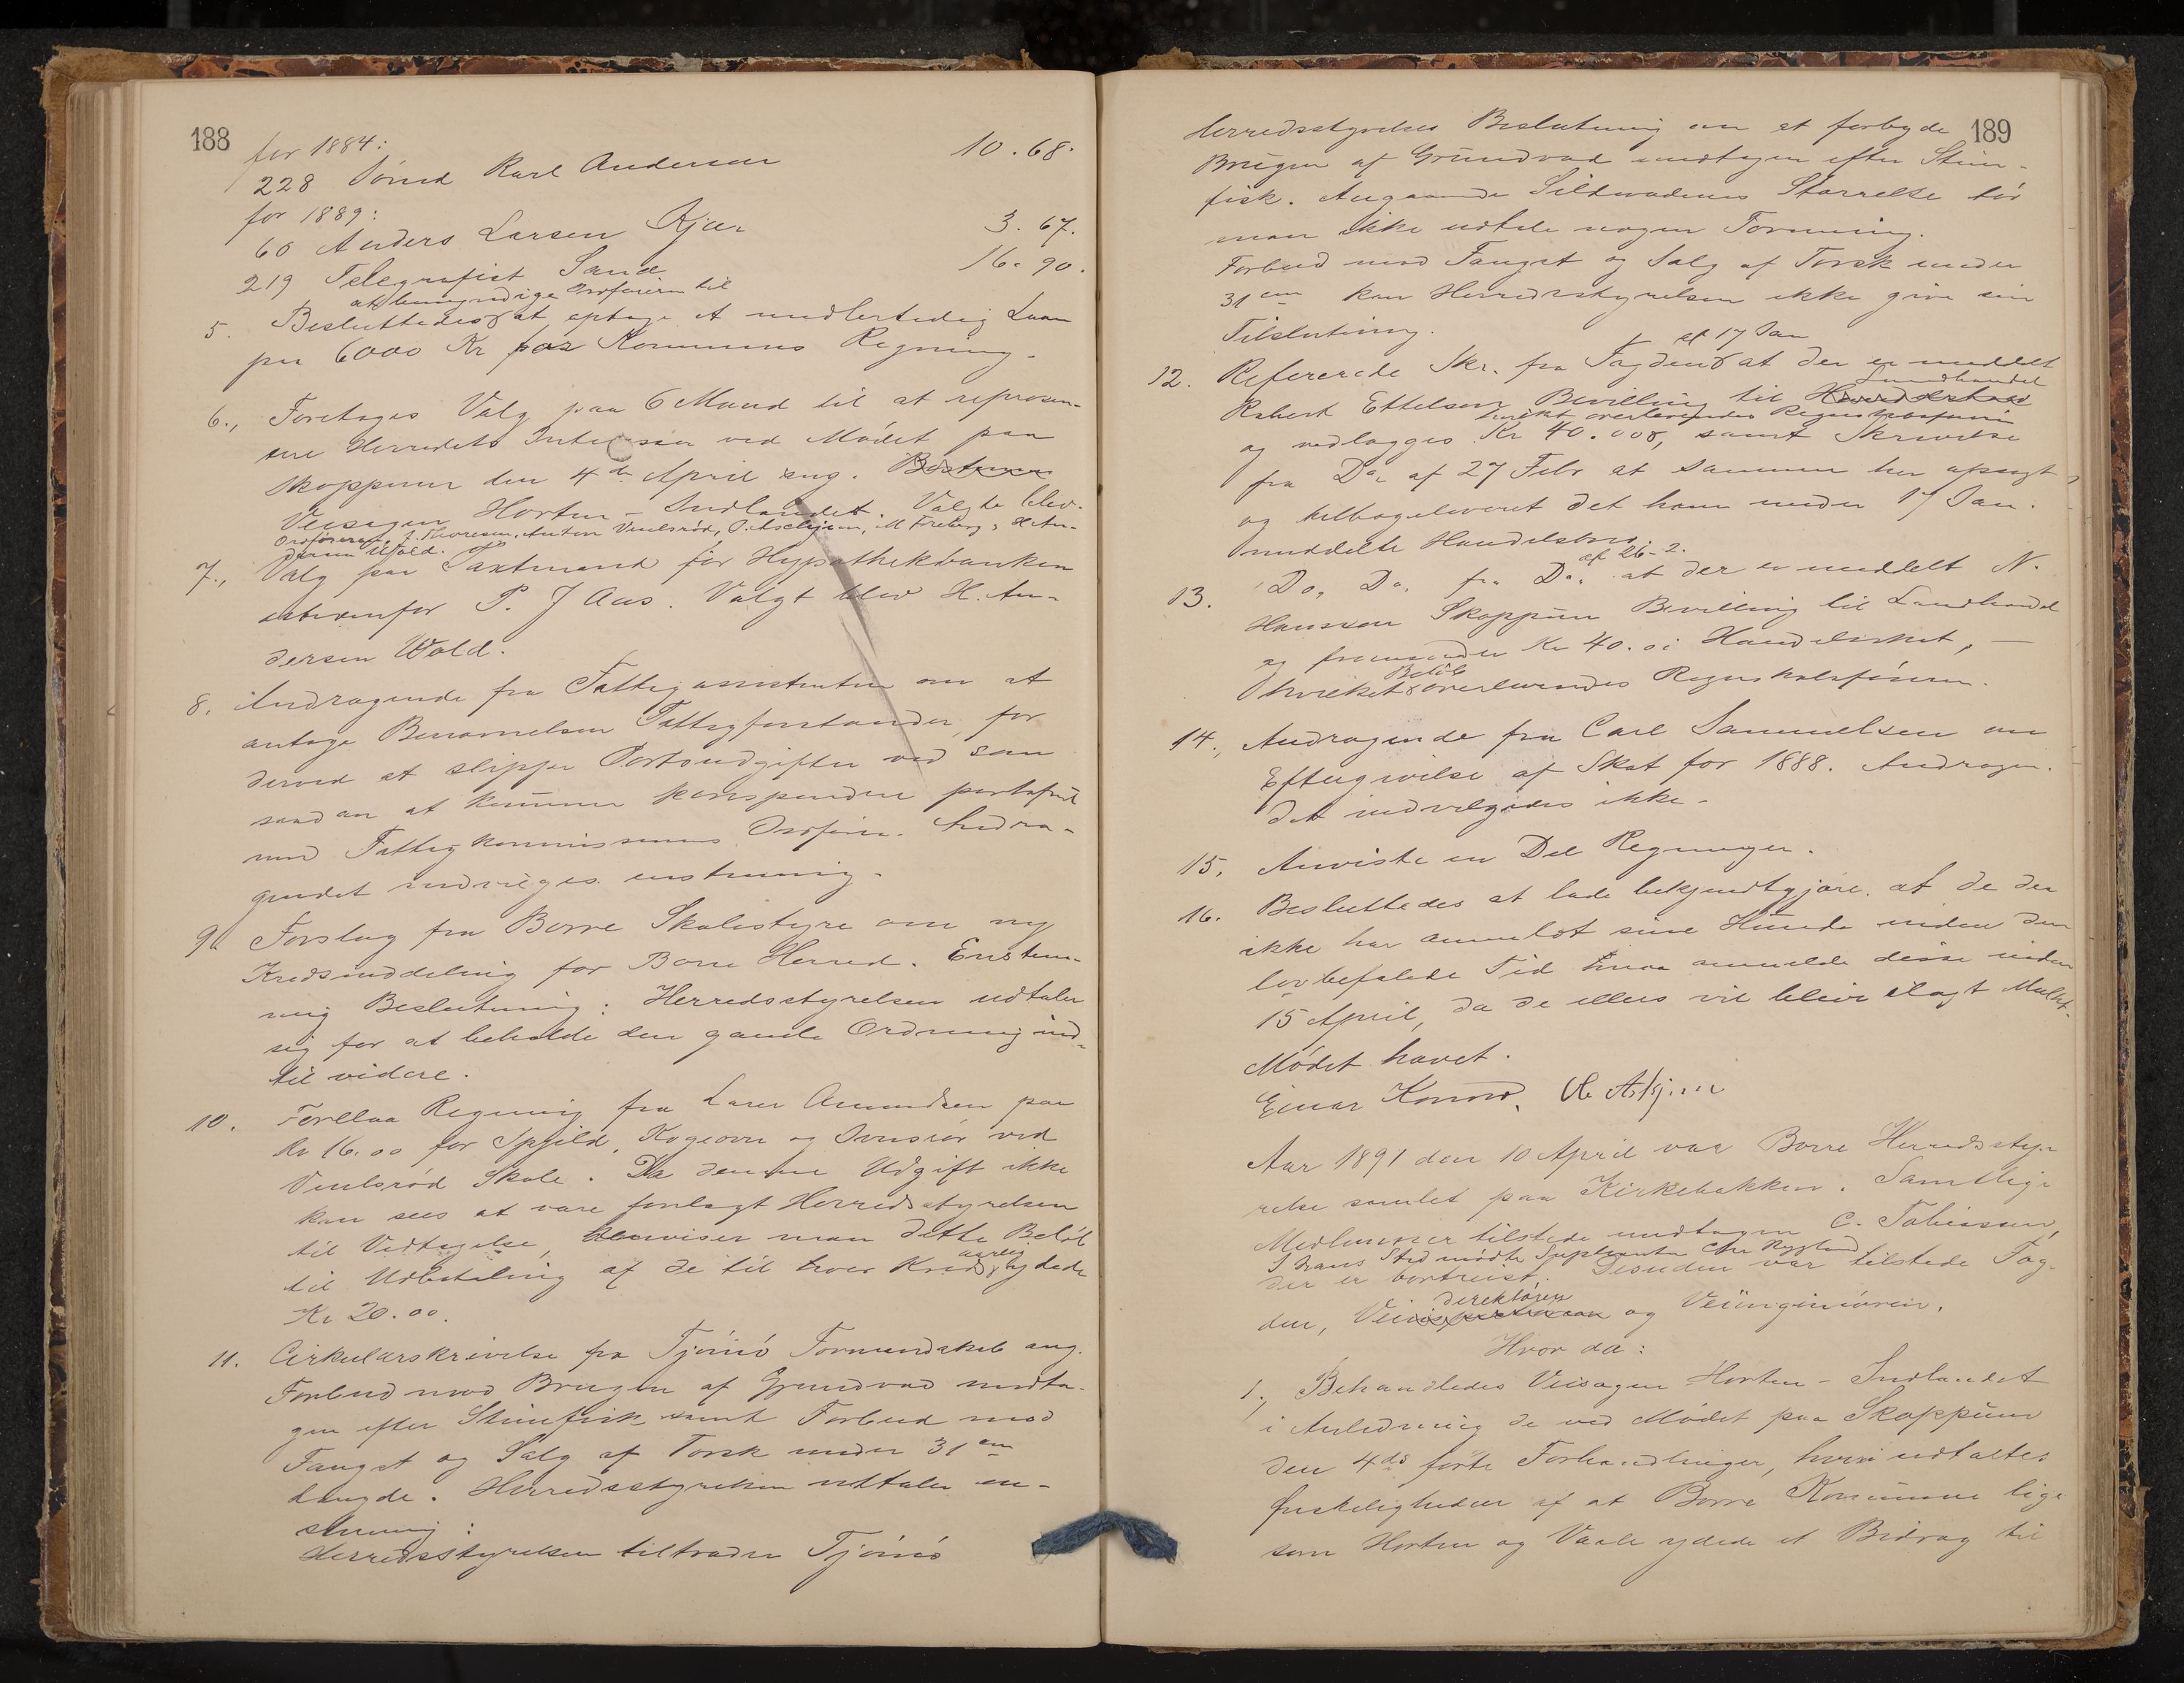 188
for 1884:
228 Tömd Karl Andersen 10.68.
for 1889:
60 Anders Larsen Kjær 3.67.
219 Telegrafist Sand 16.90.
at bemyndige Ordføreren til
5. Besluttedes at optage et midlertidig Laan
paa 6000 Kr for Kommunens Regning.
6., Foretoges Valg paa 6 Mænd til at repræsen-
tere Herredets Interesser ved Mødet paa
Skoppum den 4de April ang.
Veisagen Horten – Indlandet. Valgte blev
Ordføreren, J. Thoresen, Anton Veulsrød, O. Askjem, M Freberg, H An-
dersen Wold.
7., Valg paa Taxtmand for Hypothekbanken
istedenfor P. J Aas. Valgt blev H. An-
dersen Wold.
8. Andragende fra Fattigassistenten om at
antage Benævnelsen Fattigforstander, for
derved at slippe Portoudgifter ved som
saadan at kunne korrespondere portofrit
med Fattigkommissionens Ordfører. Andra-
gendet indvilges enstemmig.
9. Forslag fra Borre Skolestyre om ny
Kredsinddeling for Borre Herred. Enstem-
mig Beslutning: Herredsstyrelsen udtaler
sig for at beholde den gamle Ordning ind-
til videre.
10. Forelaa Regning fra Lærer Amundsen paa
Kr 16.00 for Spjeld, Kogeovn og Ovnsrør ved
Veulsrød Skole. Da denne Udgift ikke
kan sees at være forelagt Herredsstyrelsen
til Vedtagelse, henviser man dette Beløb
til Udbetaling af de til hver Kreds aarlig ydede
Kr 20.00.
11. Cirkulærskrivelse fra Tjømø Formandskab ang.
Forbud mod Brugen af Grundvad undta-
gen efter Stimfisk samt Forbud mod
Fangst og Salg af Torsk under 31 cm
Længde. Herredsstyrelsen udtaler en-
stemmig:
Herredsstyrelsen tiltræder Tjømø
189
Herredsstyrelses Beslutning om at forbyde
Brugen af Grundvad undtagen efter Stim-
fisk. Angaaende Sildevadenes Størrelse tør
man ikke udtale nogen Formening.
Forbud mod Fangst og Salg af Torsk under
31 cm kan Herredsstyrelsen ikke give sin
Tilslutning.
af 17 Jan
12. Refererede Skr. fra Fogden at der er meddelt
Landhandel
Robert Ettelsen Bevilling til
overleveredes Regnskabsføreren
og vedlagges Kr 40.00, samt Skrivelse
fra Do af 27 Febr at samme har opsagt
og tilbageleveret det ham under 17 Jan.
meddelte Handelsbrev.
af 26-2.
13. Do, Do, fra Do, at der er meddelt N.
Hanssen Skoppum Bevilling til Landhandel
og fremsender Kr 40.0 i Handelsskat, —
Beløb
hvilket overleveredes Regnskabsføreren.
14., Andragende fra Carl Samuelsen om
Eftergivelse af Skat for 1888. Andragen-
det indvilgedes ikke.
15. Anviste en Del Regninger.
16. Besluttedes at lade bekjendtgjøre, at de der
ikke har anmeldt sine Hunde inden den
lovbefalede Tid maa anmelde disse inden
15 April, da de ellers vil blive ilagt Mulkt.
Mødet hævet.
Einar Konow. Askjem
Aar 1891 den 10 April var Borre Herredssty-
relse samlet paa Kirkebakken. Samtlige
Medlemmer tilstede undtagen C. Tobiassen,
I hans Sted mødte Suplanten Chr Nygland
der er bortreist. Desuden var tilstede Fog-
direktøren
den, Vei og Veiingeniøren.
Hvor da:
1., Behandledes Veisagen Horten – Indlandet
i Anledning de ved Mødet paa Skoppum
den 4de førte Forhandlinger, hvori udtaltes
Ønskeligheden af at Borre Kommune lige
som Horten og Vaale ydede et Bidrag til